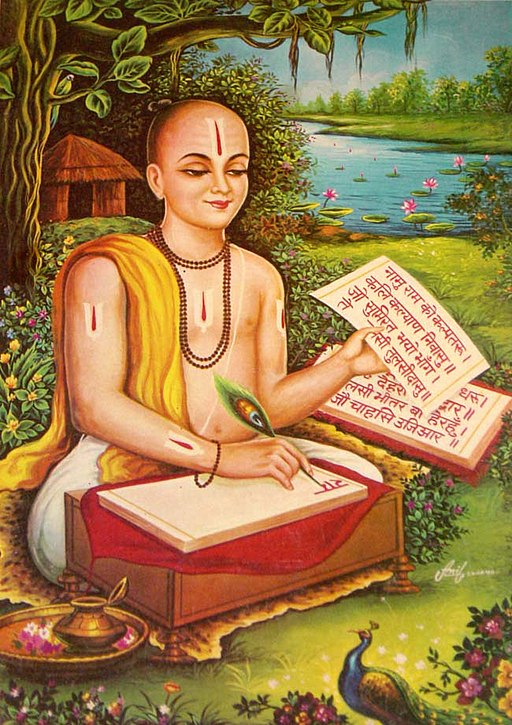 नामु राम का कल्पतरू।
कलि कल्याण निवासु॥
जो सुमिरत भयो भाँग।
तुलसीदासु॥
धरू।
देहरी
लसी भीतर बा हेरहूँ।
जौ चाहसि उजिआर॥
Anil sharma